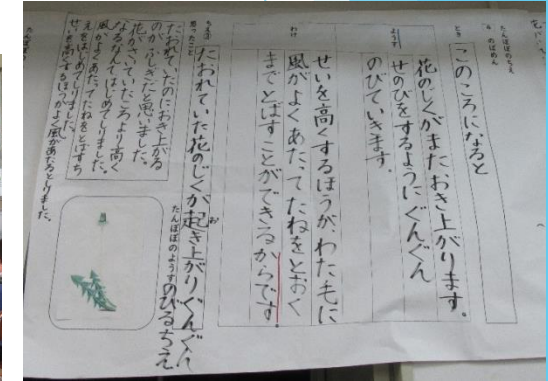 たんぽぽのちえ
のばめん
とき
このころになると
ようす
花のじくがまたおき上がります。
せのびをするようにぐんぐん
のびていきます。
わけ
せいを高くするほうが、わた毛に
風がよくあたってたねをとおく
までとばすことができるからです。
ちえ
たおれていた花のじくが起き上がりぐんぐん
のびるちえ
お
たんぽぽのようす
思ったこと
たおれていたのにおき上がる
のがふしぎだと思いました。
花がさいていたころより高く
なるなんてはじめてしりました。
風がよくあたってたねをとばすち
えをはじめてしりました。
せいを高くするほうがよく風があたるとしりました。